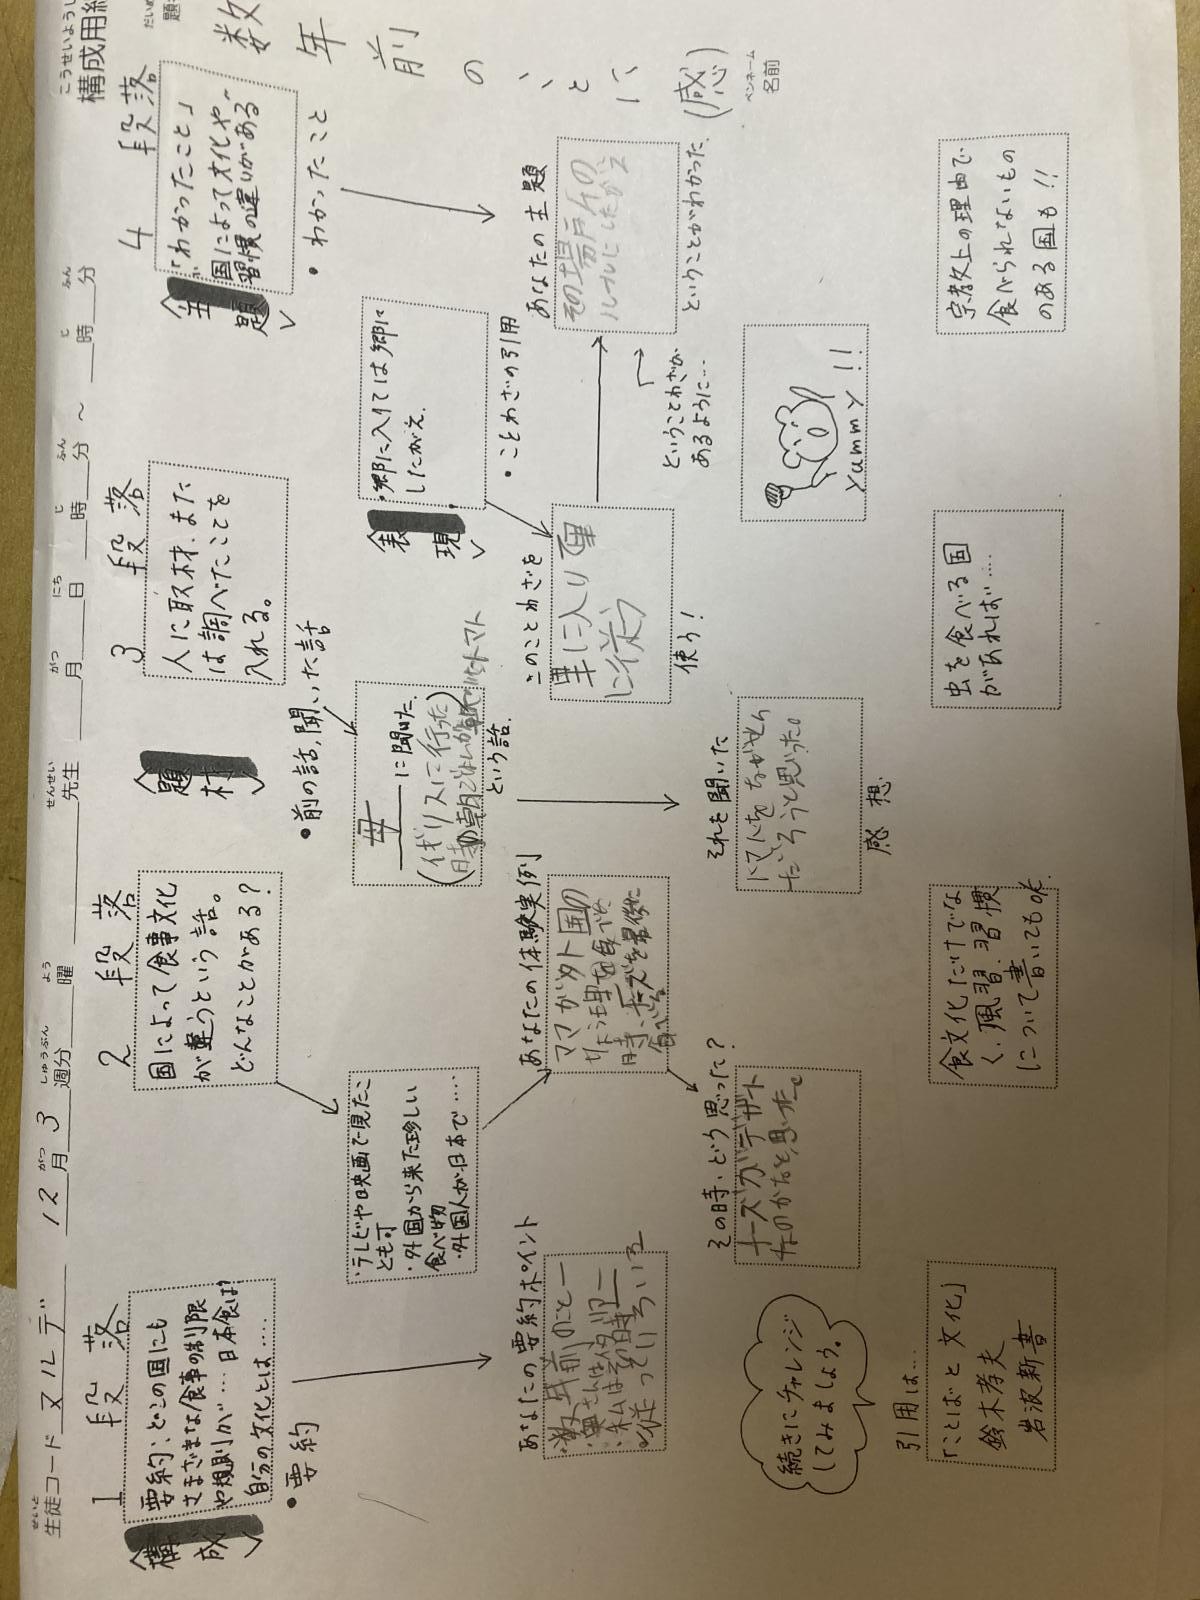 構成用紙
こうせいようし
生徒コード ヌルデ 12月3週分 曜 先生 月 日 時 分 ～ 時 分
せいと がつ しゅうぶん よう せんせい がつ にち じ ふん じ ふん
1 段落
〈構成〉
要約、どこの国にも
さまざまな食事の制限
や規則が…日本食は?
自分の文化とは……
・要約
あなたの要約ポイント
数年前のこと
続きにチャレンジ
してみましょう。
引用は…
「ことばと文化」
鈴木孝夫
岩波新書
2 段落
国によって食事文化
が違うという話。
どんなことがある?
・テレビや映画で見たこ
とも可
・外国から来た珍しい
食べ物
・外国人が日本で…
あなたの体験実例
ママが外国の
その時、どう思った?
チーズがデザート
なのかなと思った。
食文化だけでな
く、風習、習慣
について書いてもOK.
3 段落
〈題材〉
人に取材、また
は調べたことを
入れる。
・前の話、聞いた話
母に聞いた。
(イギリスに行った
という話.
それを聞いた
トマトをなぜやく
だろうと思った。
感想
虫を食べる国
があれば…
〈表現〉
・郷に入ては郷に
したがえ.
・ことわざの引用
このことわざを
使う!
ということわざが
あるように…
Yummy!!
4 段落
〈主題〉
「わかったこと」
国によって文化や
習慣の違いがある
・わかったこと
あなたの主題
その場所の
ルールにしたがう
ということがわかった.
宗教上の理由で
食べられないもの
のある国も!!
数年前のこと
(感)
ペンネーム
名前